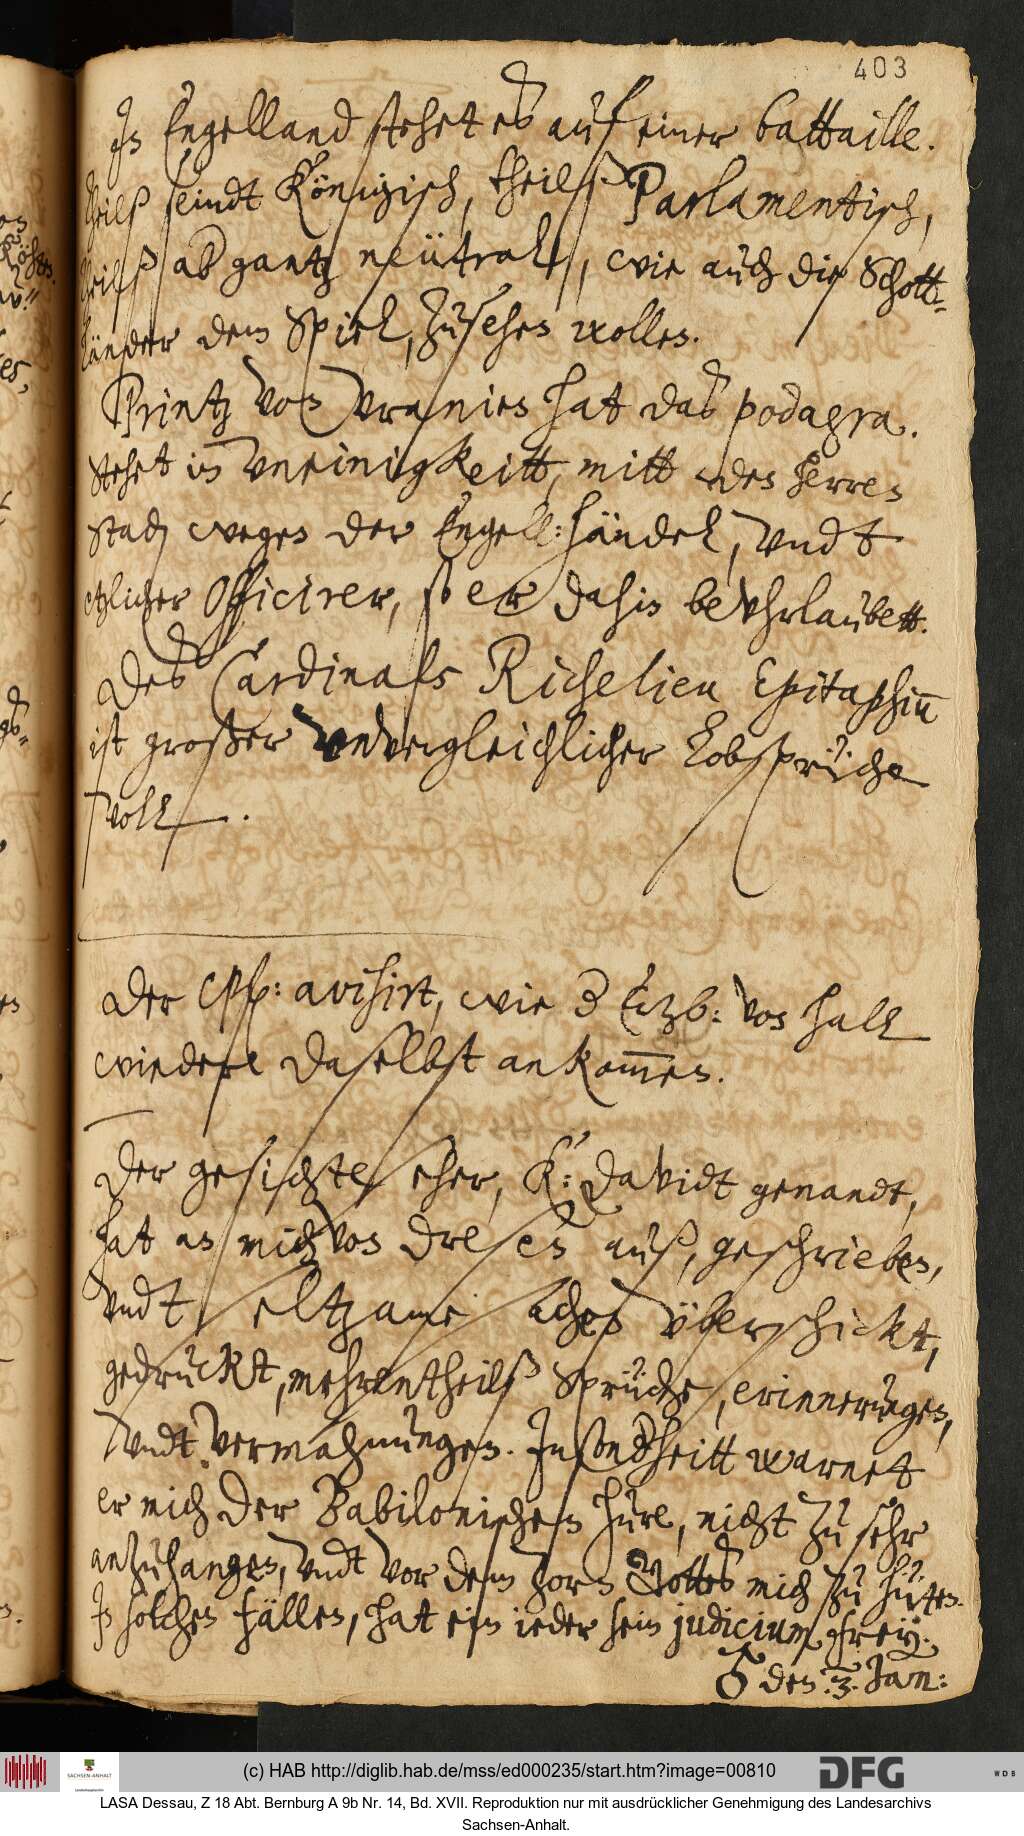 403
In Engelland stehet es auf einer battaille.
theilß seindt Königisch, theilß Parlamentisch,
theilß ab gantz neütrall, wie auch die Schott-
länder dem Spiel, zusehen wollen.
Printz von Vranien hat das podagra.
Stehet in vneinigkeitt, mitt den Herren
Stad, wegen der Engell: händel, vndt
etzlicher Officirer, so er dahin beuhrlaubett.
Des Cardinals Richelieu Epitaphiu͞
ist großer vnvergleichlicher Lobsprüche
voll.
Der CPf: avisirt, wie d Ertzb: von Hall
wieder daselbst ankom̅en.
Der gesichte seher, K: Davidt genandt,
hat an mich von Dresen auß, geschrieben,
vndt seltzame sachen überschickt,
gedruckt, mehrentheilß Sprüche, erinnerungen,
vndt vermahnungen. Insonderheitt warnet
er mich der Babilonischen Hure, nicht zu sehr
anzuhangen, vndt vor dem zorn Gottes mich zu hüten.
In solchen fällen, hat ein ieder sein judicium frey.
♂ den 3. Jan:
(c) HAB http://diglib.hab.de/mss/ed000235/start.htm?image=00810
SACHSEN-ANHALT
DFG
WDB
LASA Dessau, Z 18 Abt. Bernburg A 9b Nr. 14, Bd. XVII. Reproduktion nur mit ausdrücklicher Genehmigung des Landesarchivs
Sachsen-Anhalt.